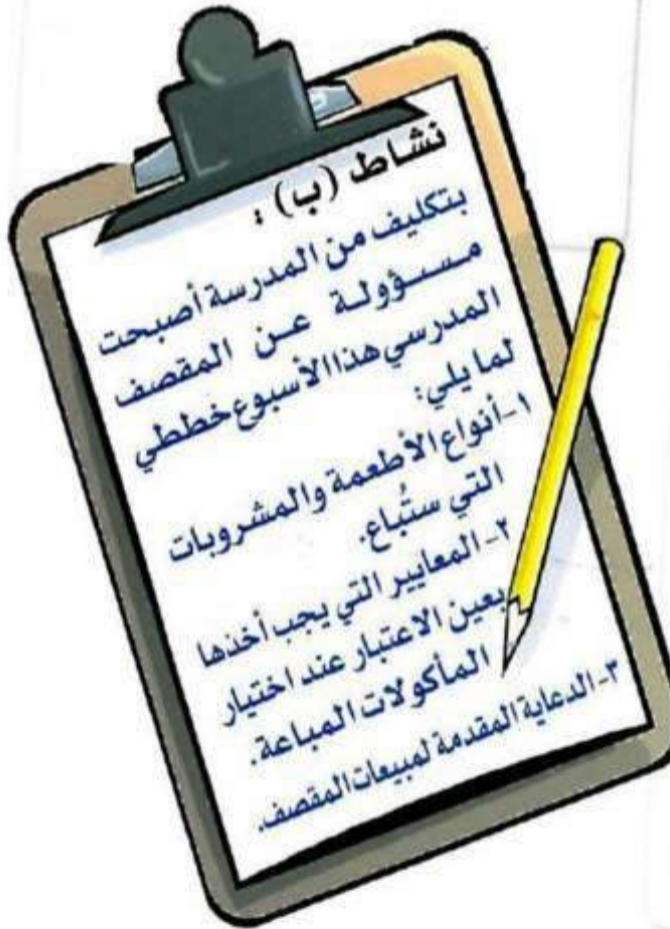 نشاط (ب) :
بتكليف من المدرسة أصبحت
مسؤولة عن المقصف
المدرسي هذا الأسبوع خططي
لما يلي:
١- أنواع الأطعمة والمشروبات
التي ستُباع.
٢- المعايير التي يجب أخذها
بعين الاعتبار عند اختيار
المأكولات المباعة.
٣- الدعاية المقدمة لمبيعات المقصف.